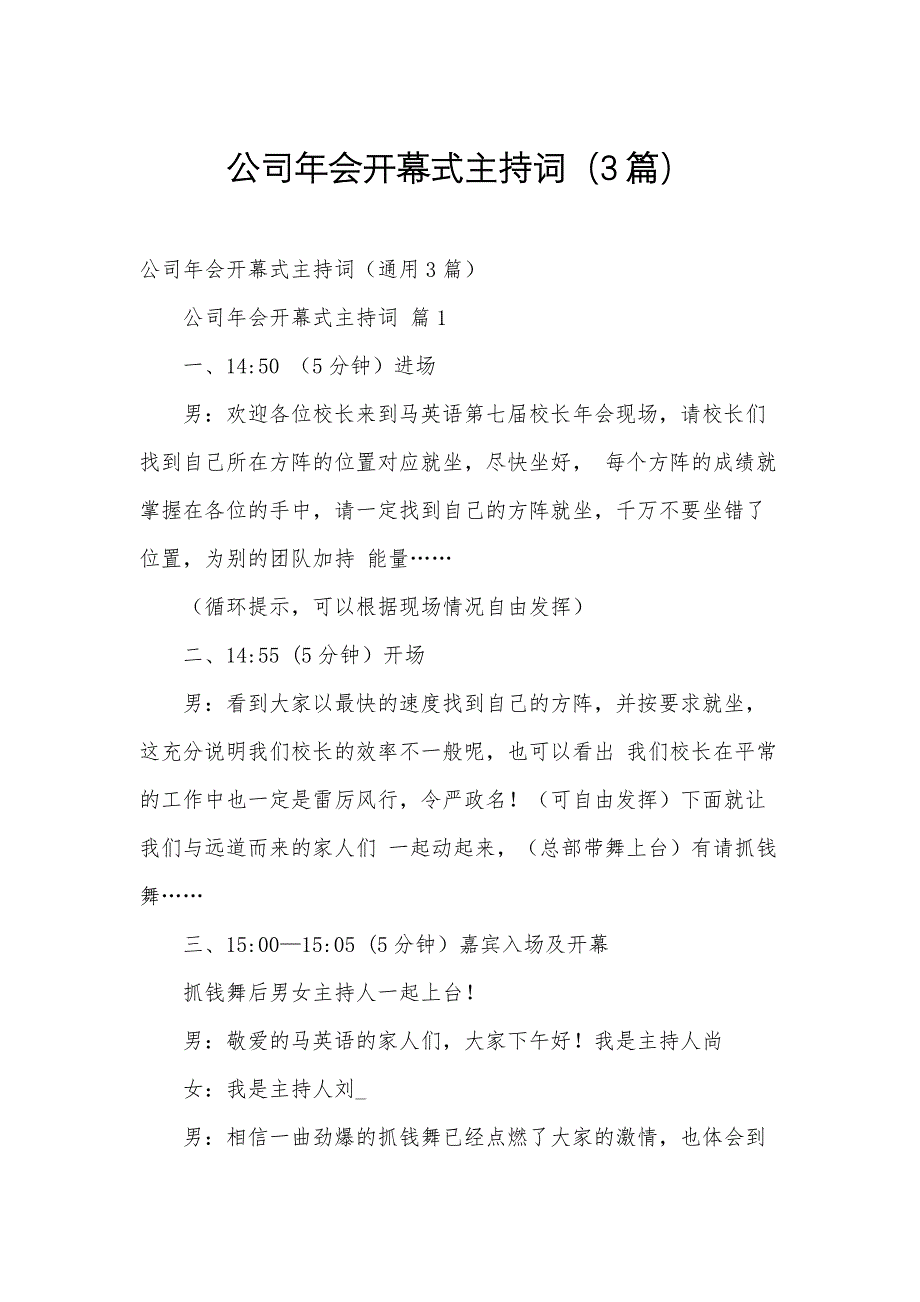 公司年会开幕式主持词（3篇）
公司年会开幕式主持词（通用3篇）
公司年会开幕式主持词 篇1
一、14:50 （5分钟）进场
男：欢迎各位校长来到马英语第七届校长年会现场，请校长们
找到自己所在方阵的位置对应就坐，尽快坐好， 每个方阵的成绩就
掌握在各位的手中，请一定找到自己的方阵就坐，千万不要坐错了
位置，为别的团队加持 能量……
（循环提示，可以根据现场情况自由发挥）
二、14:55 (5分钟）开场
男：看到大家以最快的速度找到自己的方阵，并按要求就坐，
这充分说明我们校长的效率不一般呢，也可以看出 我们校长在平常
的工作中也一定是雷厉风行，令严政名！（可自由发挥）下面就让
我们与远道而来的家人们 一起动起来，（总部带舞上台）有请抓钱
舞……
三、15:00—15:05 (5分钟）嘉宾入场及开幕
抓钱舞后男女主持人一起上台！
男：敬爱的马英语的家人们，大家下午好！我是主持人尚
女：我是主持人刘_
男：相信一曲劲爆的抓钱舞已经点燃了大家的激情，也体会到